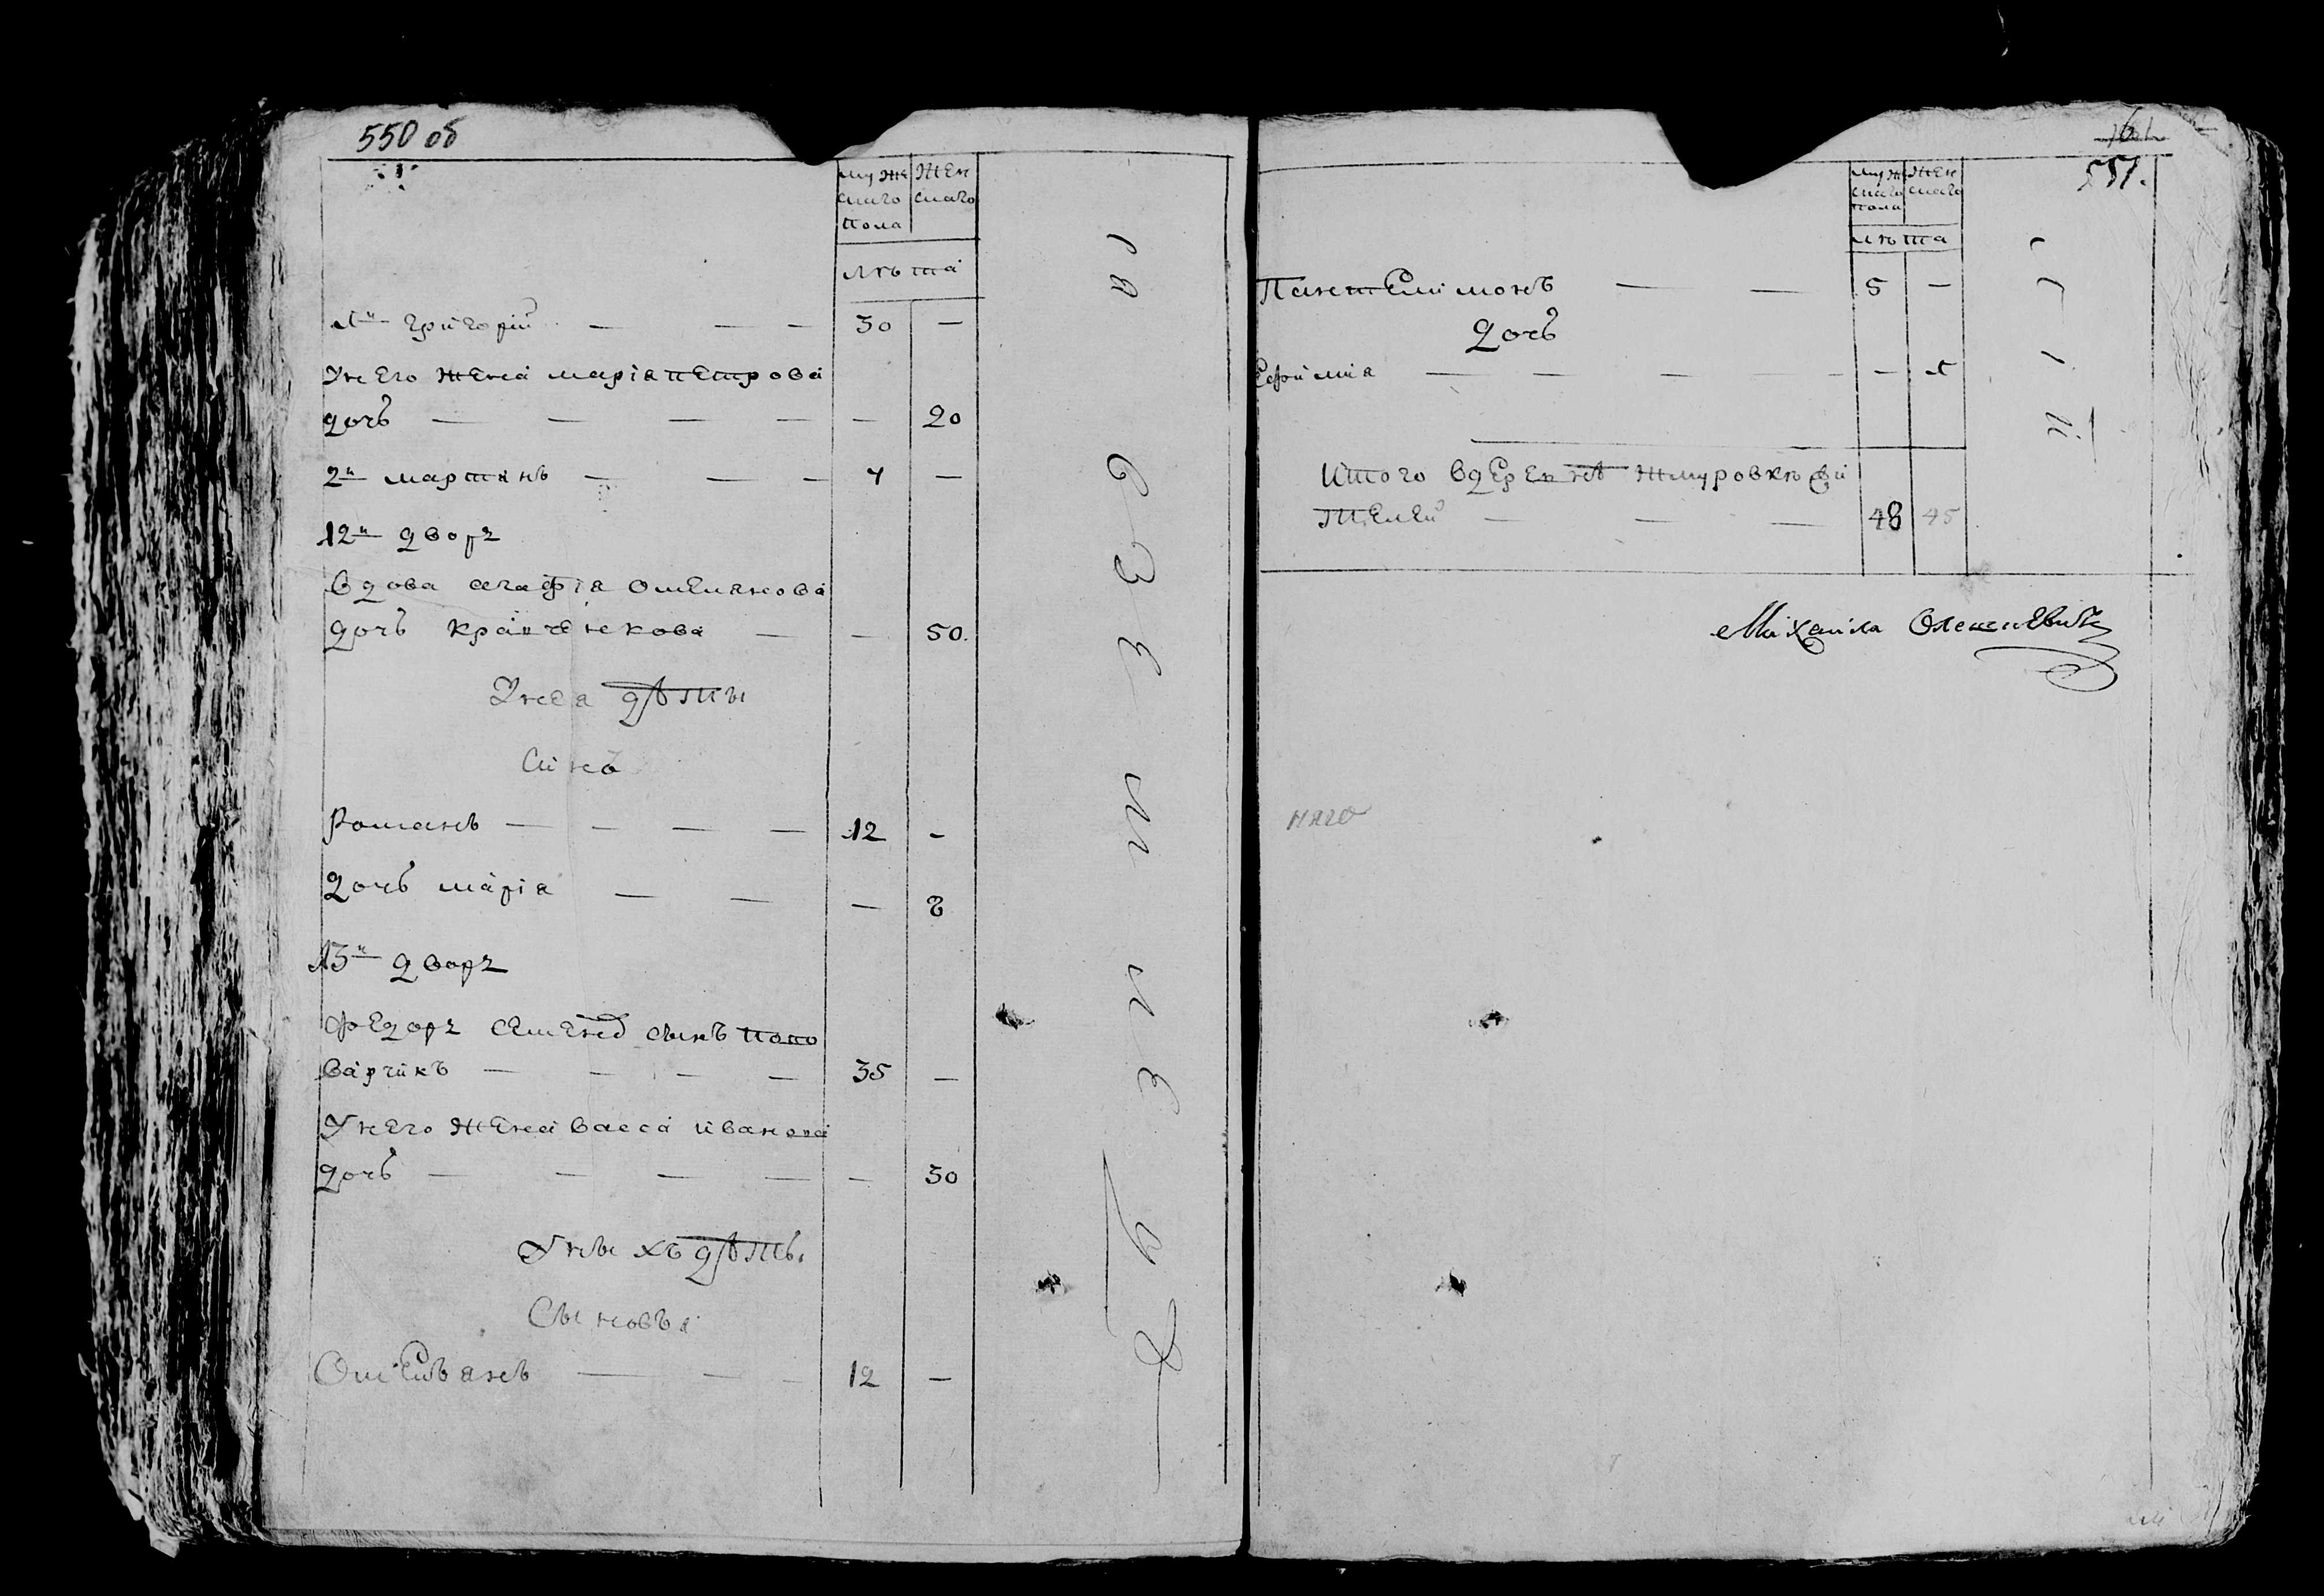 550 об
муже
скаго
пола
жен
скаго
лѣта
1й григорій — — — 30 —
Унего жена маріа петрова
дочь — — — — — 20
2й мартинъ — — — 4 —
12й дворъ
Вдова агафіа омелянова
дочь — — 50.
Унея дѣти
Синъ
Романъ — — — — 12 —
Дочь маріа — — — 8
13й дворъ
Федоръ семенов сынъ попо
варчикъ — — — — 35 —
Унего жена васса иванова
дочь — — — — — 30
Унихъ дѣти
Сыновья
Омельянъ — — — 12 —
161
551.
муже
скаго
пола
жен
скаго
лѣта
Пантелимонъ — — 5 —
Дочь
Ефиміа — — — — — 1
Итого вдеревнѣ жмуровки
48 45
Михаила